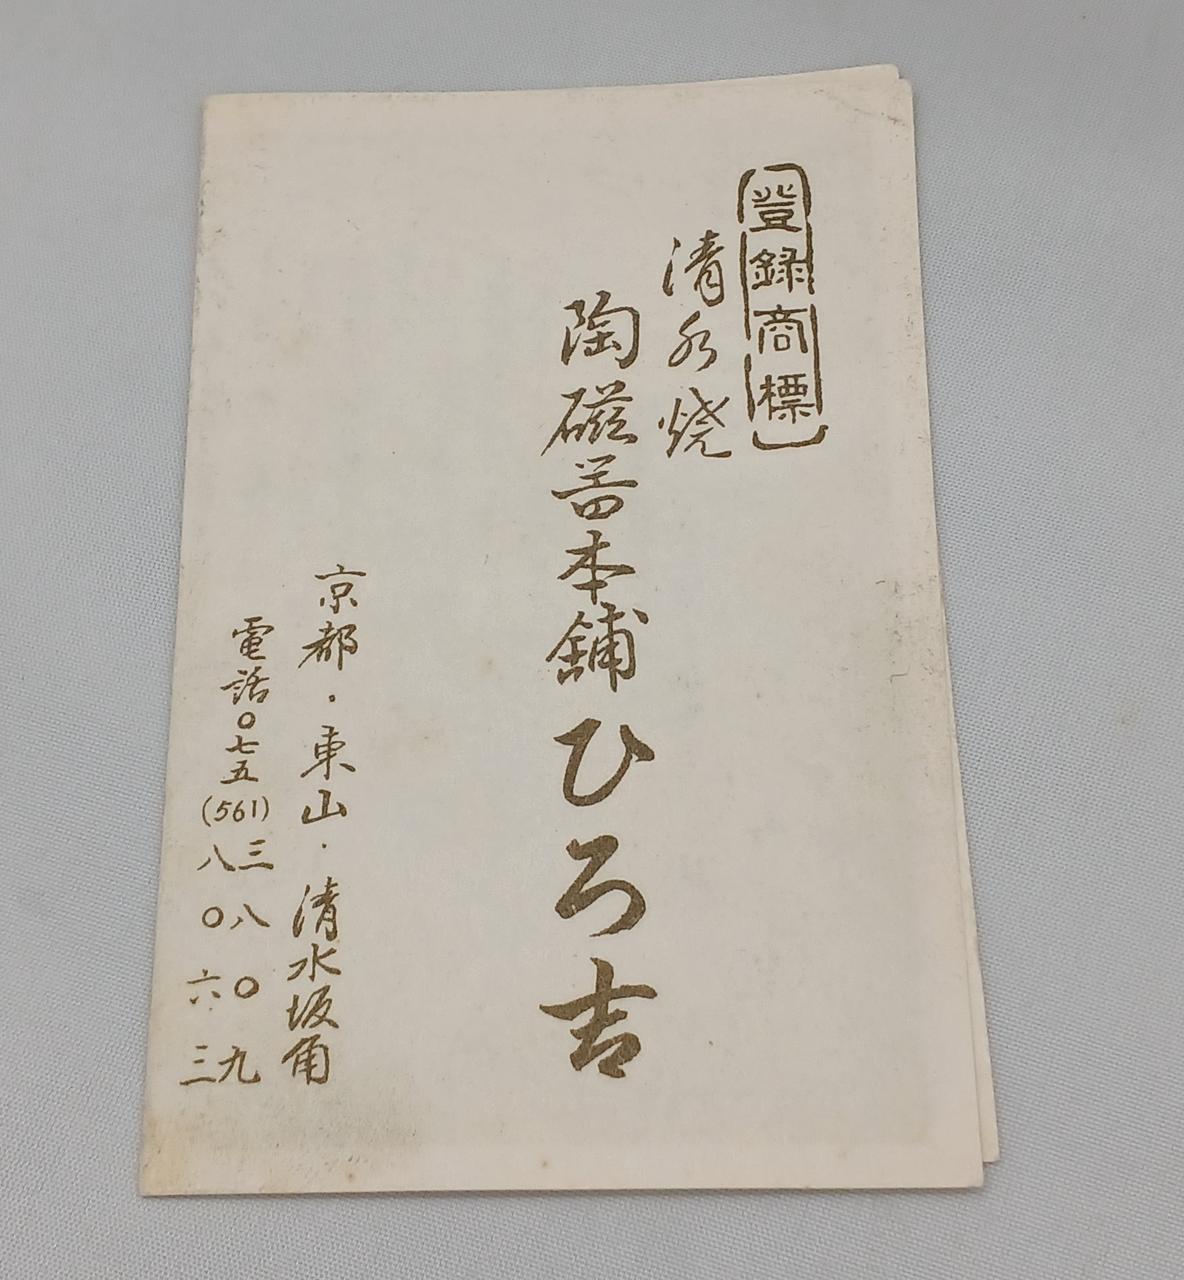 登録商標
清水焼
陶磁器本舗ひろ吉
京都・東山・清水坂角
電話〇七五(561)三八〇九
八〇六三